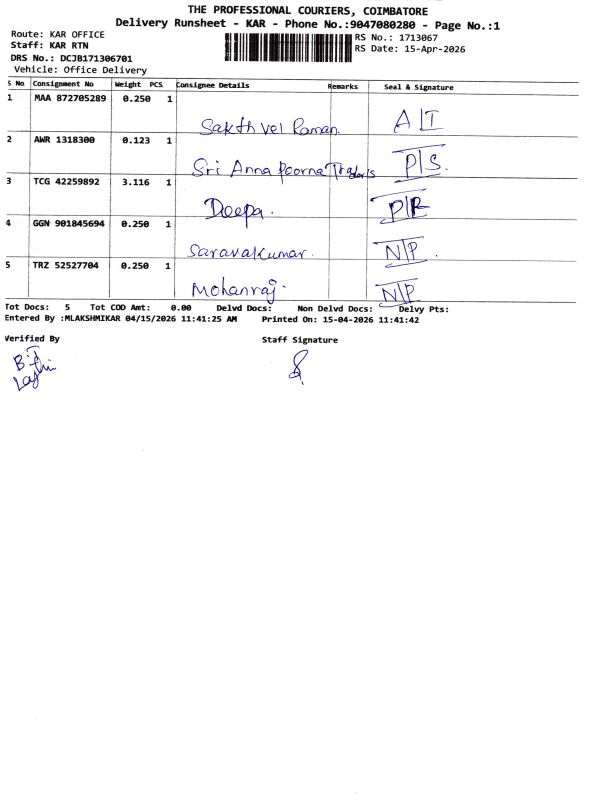 THE PROFESSIONAL COURIERS, COIMBATORE
Delivery Runsheet - KAR - Phone No.:9047080280 - Page No.:1
Route: KAR OFFICE
RS No.: 1713067
Staff: KAR RTN
RS Date: 15-Apr-2026
DRS No.: DCJB171306701
Vehicle: Office Delivery
S No Consignment No Weight PCS Consignee Details Remarks Seal & Signature
1 MAA 872705289 0.250 1
Sakthvel Raman. A|I
2 AWR 1318300 0.123 1
Sri Anna Poorna Traders P|S.
3 TCG 42259892 3.116 1
Deepa. P|R
4 GGN 901845694 0.250 1
Saravakumar. N|P.
5 TRZ 52527704 0.250 1
Mohanraj. N|P
Tot Docs: 5 Tot COD Amt: 0.00 Delvd Docs: Non Delvd Docs: Delvy Pts:
Entered By :MLAKSHMIKAR 04/15/2026 11:41:25 AM Printed On: 15-04-2026 11:41:42
Verified By Staff Signature